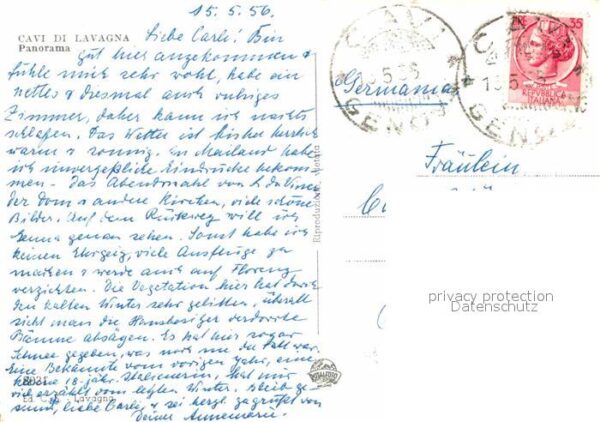 15.5.56.
CAVI DI LAVAGNA
Panorama
Liebe Carla! Bin
gut hier angekommen &
fühle mich sehr wohl, habe ein
nettes & diesmal auch ruhiges
Zimmer, daher kann ich nachts
schlafen. Das Wetter ist bisher herrlich
warm & sonnig. In Mailand habe
ich unvergeßliche Eindrücke bekom-
men. Das Abendmahl von L. da Vinci
der Dom & andere Kirchen, viele schöne
Bilder. Auf dem Rückweg will ich
Genua genau sehen. Sonst habe ich
keinen Ehrgeiz, viele Ausflüge zu
machen & werde auch auf Florenz
verzichten. Die Vegetation hier hat durch
den kalten Winter sehr gelitten, überall
sieht man die Hausbesitzer verdorrte
Bäume absägen. Es hat hier sogar
Schnee gegeben, was noch nie der Fall war.
Eine Bekannte vom vorigen Jahr, eine
18-jähr. Italienerin, hat mir
viel erzählt vom letzten Winter. Bleib ge-
sund, liebe Carla, & sei herzl. gegrüßt von
Deiner Annemarie.
Ed. Lavagna
Riproduzione vietata
CAVI
GENOVA
Germania
CAVI
GENOVA
35
REPUBBLICA
ITALIANA
Fräulein
privacy protection
Datenschutz